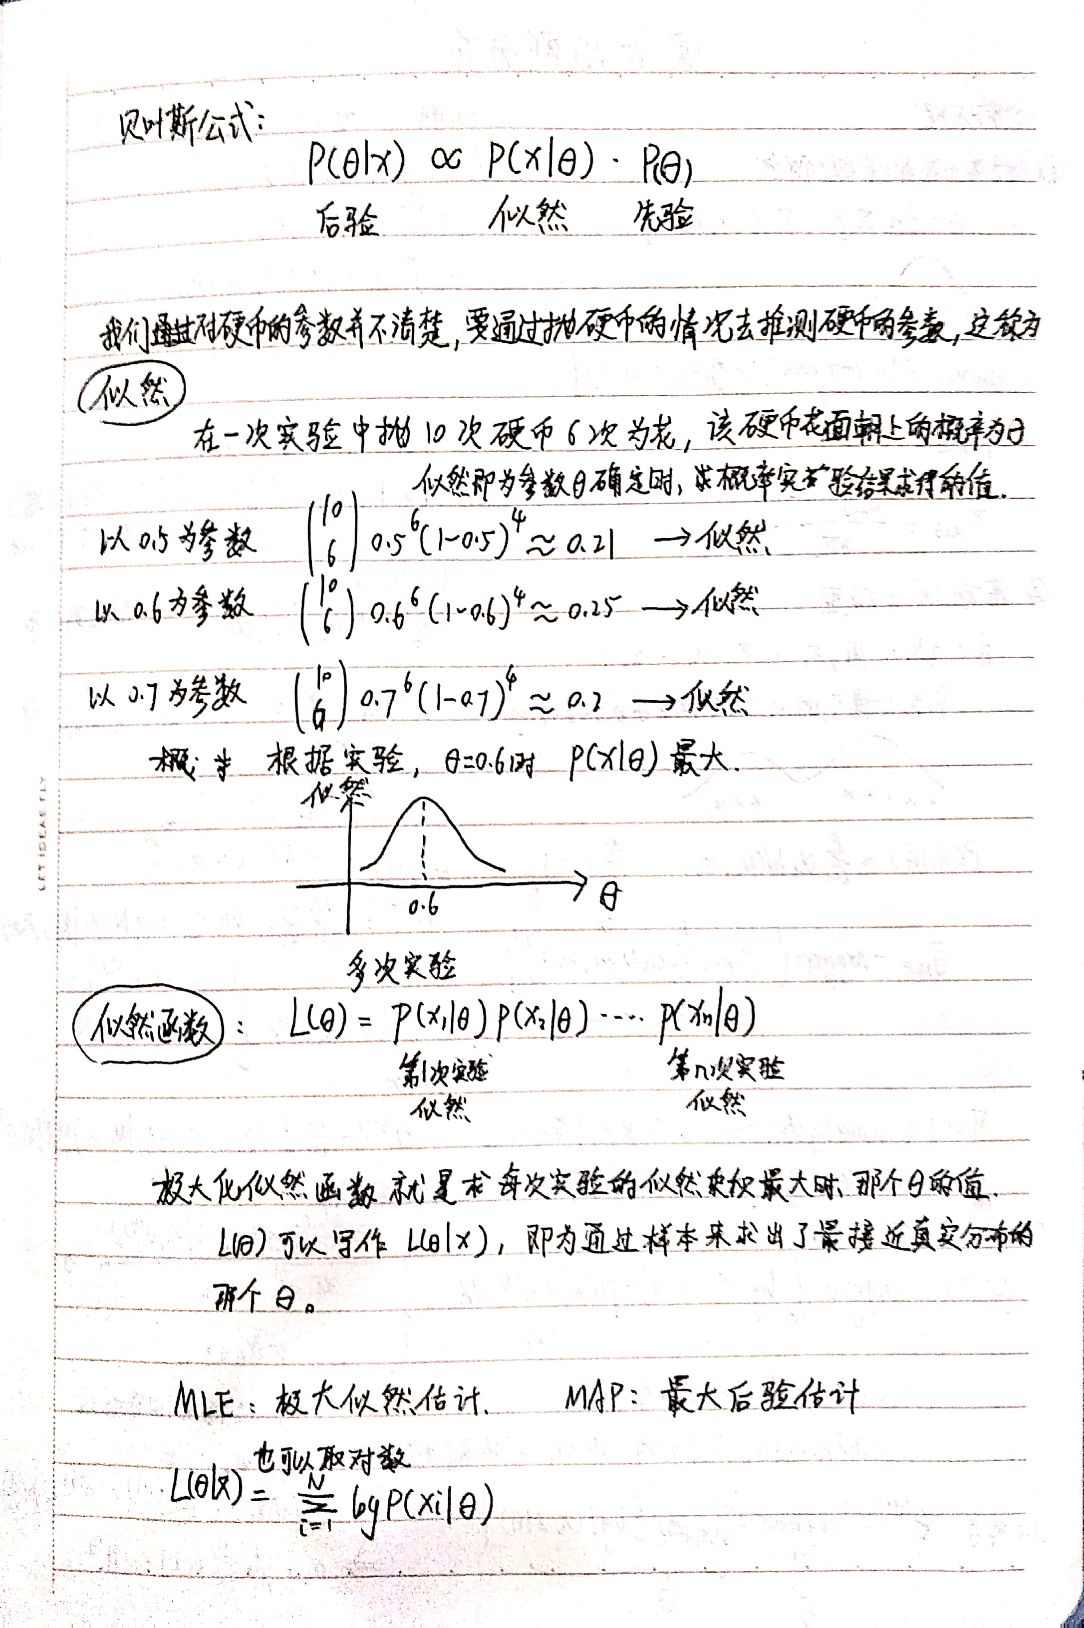 贝叶斯公式：
P(θ|x) ∝ P(x|θ) · P(θ)
后验 似然 先验
我们对硬币的参数并不清楚，要通过抛硬币的情况去推测硬币的参数，这称为
似然
在一次实验中抛10次硬币6次为花，该硬币花面朝上的概率为θ
似然即为参数θ确定时，求概率实验结果求得的值.
以0.5为参数 (10 6) 0.5^6 (1-0.5)^4 ≈ 0.21 → 似然
以0.6为参数 (10 6) 0.6^6 (1-0.6)^4 ≈ 0.25 → 似然
以0.7为参数 (10 6) 0.7^6 (1-0.7)^4 ≈ 0.2 → 似然
根据实验，θ=0.6时 P(x|θ) 最大.
似然
θ
0.6
多次实验
似然函数： L(θ) = P(x₁|θ) P(x₂|θ) ···· P(xn|θ)
第1次实验 第n次实验
似然 似然
极大化似然函数就是求每次实验的似然乘积最大时、那个θ的值.
L(θ)可以写作 L(θ|x)，即为通过样本来求出了最接近真实分布的
那个θ。
MLE：极大似然估计. MAP：最大后验估计
也可以取对数
L(θ|x) = N∑i=1 log P(xi|θ)
LET IDEAS FLY